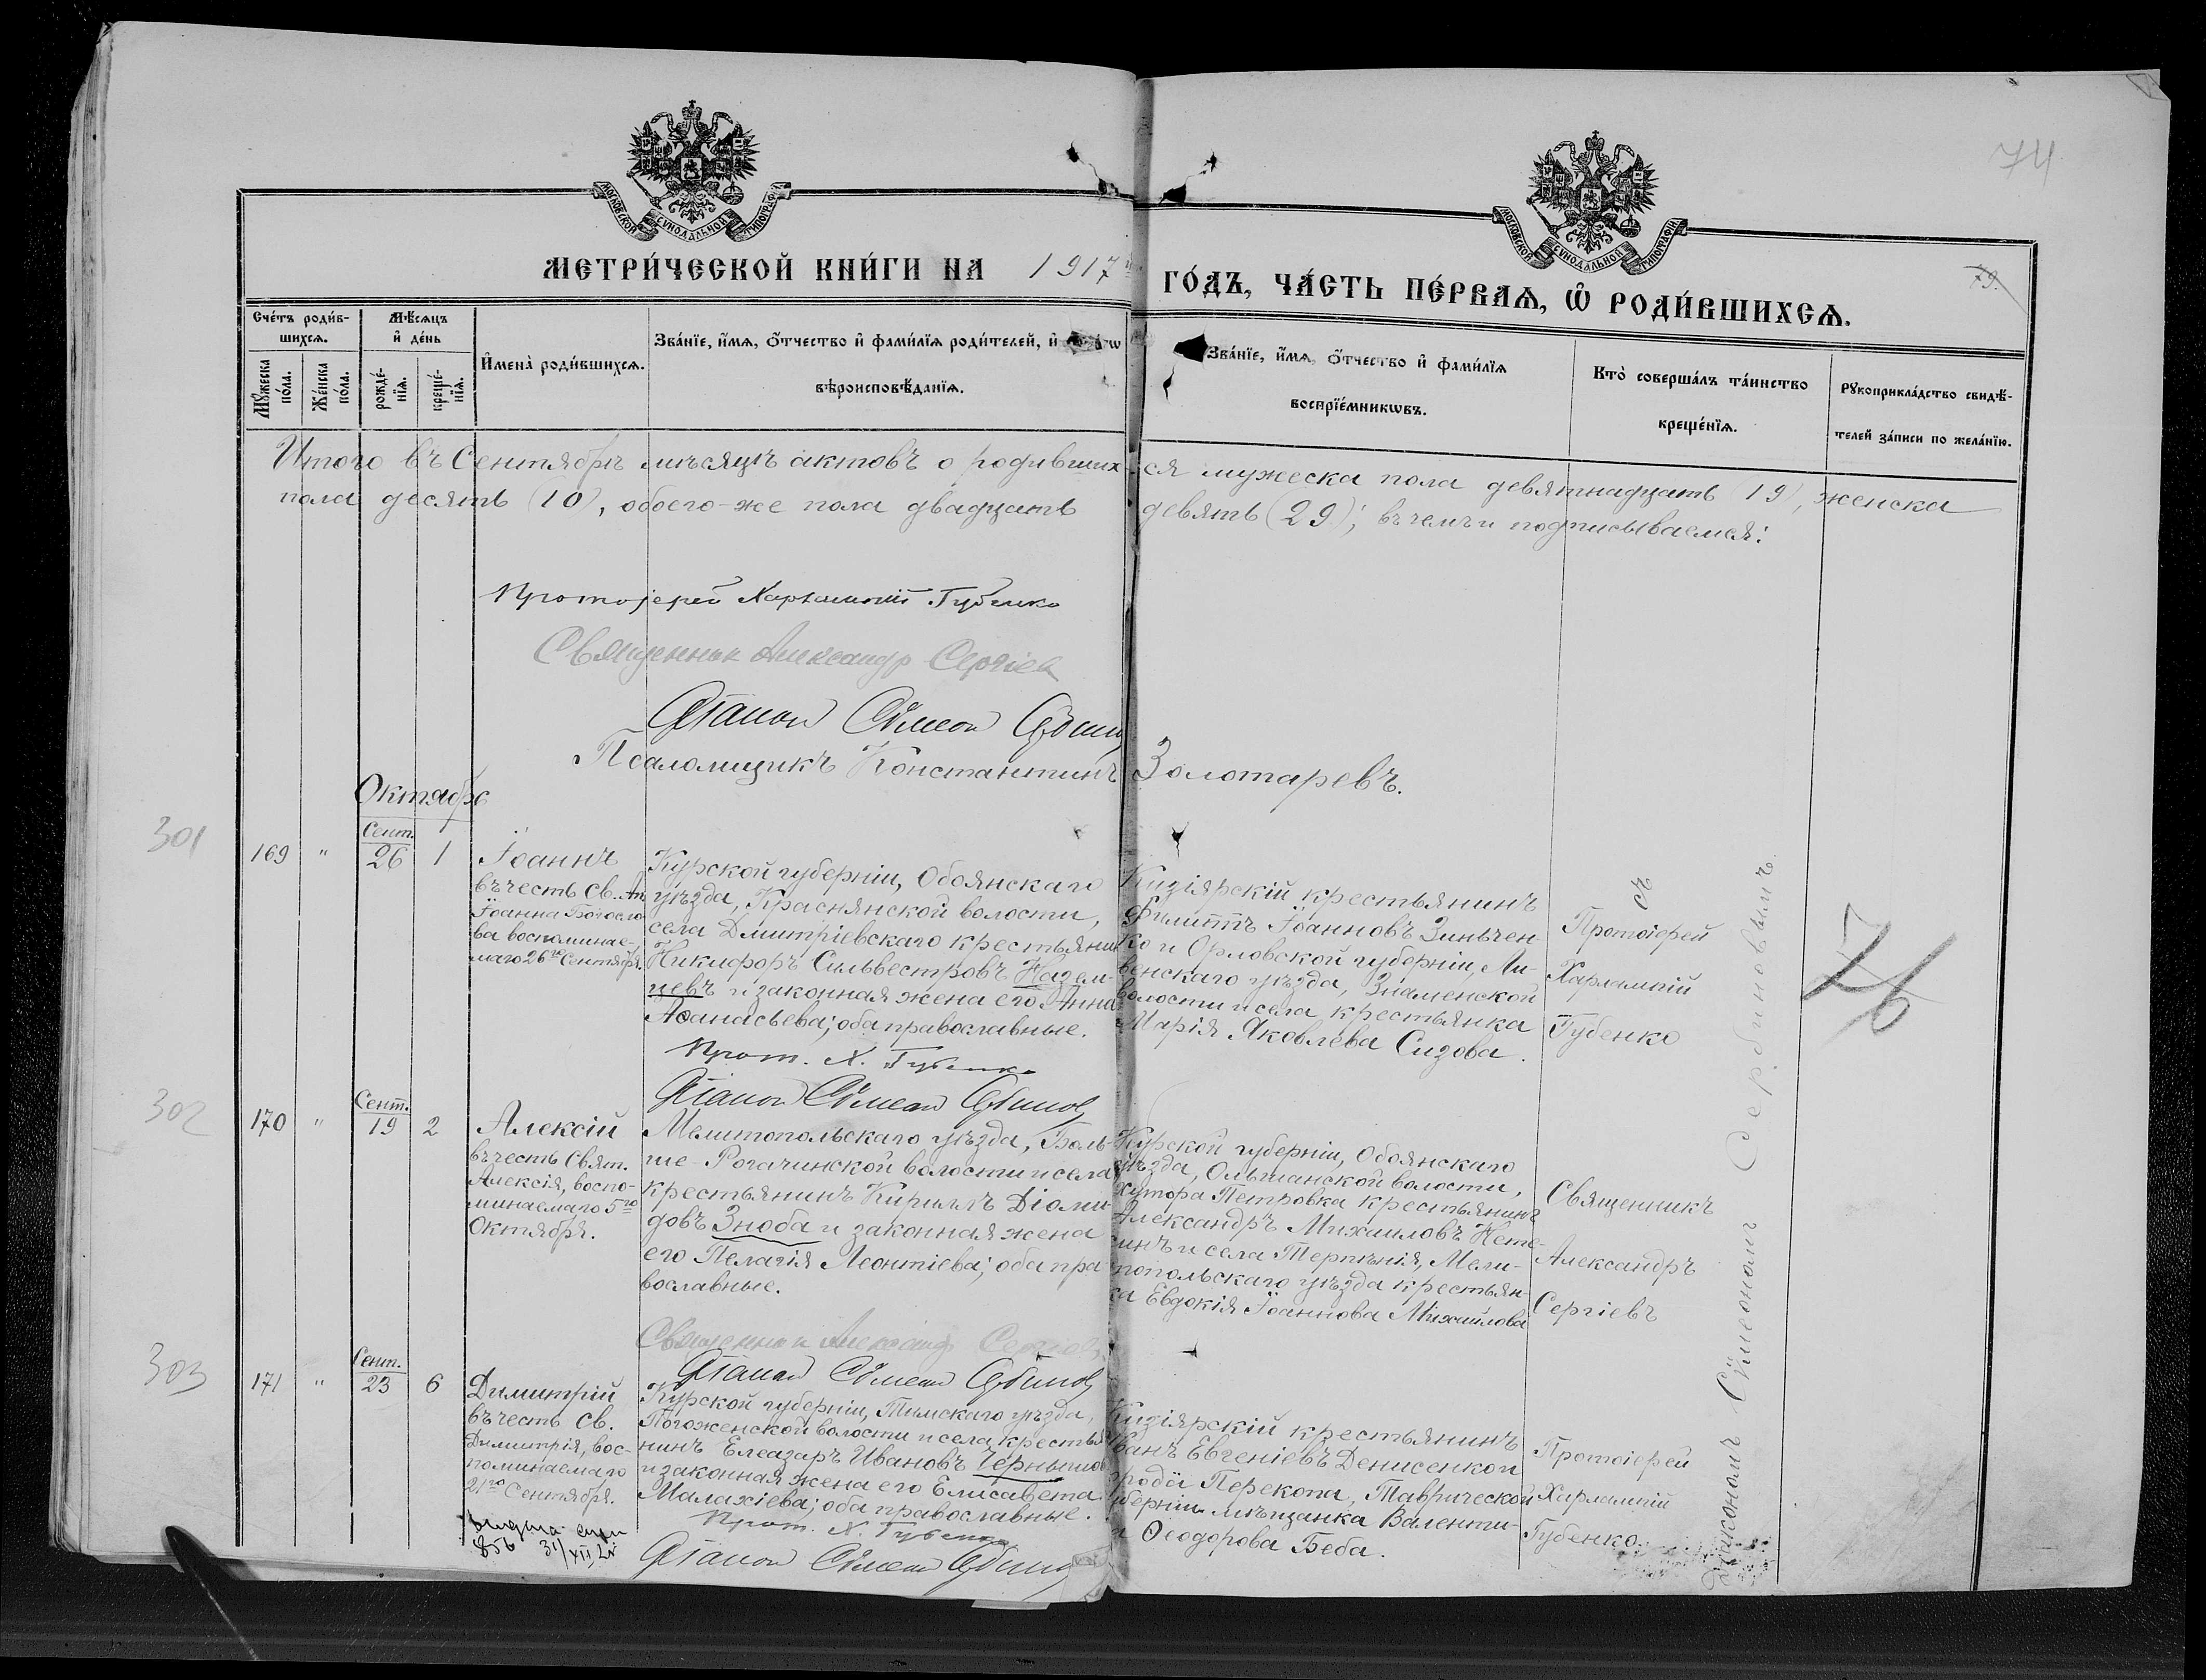 74
МОСКОВСКОЙ СѴНОДАЛЬНОЙ ТИПОГРАФІИ
МОСКОВСКОЙ СѴНОДАЛЬНОЙ ТИПОГРАФІИ
МЕТРИ́ЧЕСКОЙ КНИ́ГИ НА 1917 ГО́ДЪ, ЧА́СТЬ ПЕ́РВАѦ, Ѡ РОДИ́ВШИХСѦ.
79.
Сче́тъ роди́в-
шихсѧ.
Мꙋ́жеска
по́ла.
Же́нска
по́ла.
Мѣ́сѧцъ
и҆ де́нь
рожде́-
нїѧ.
креще́-
нїѧ.
И҆мена̀ роди́вшихсѧ.
Зва́нїе, и҆́мѧ, ѻ҆́тчество и҆ фами́лїѧ роди́телей, и҆
вѣроисповѣ́данїѧ.
Зва́нїе, и҆́мѧ, ѻ҆́тчество и҆ фами́лїѧ
воспрїе́мникѡвъ.
Кто̀ соверша́лъ та́инство
креще́нїѧ.
Рꙋкоприкла́дство свидѣ́-
телей за́писи по жела́нїю.
Итого въ Сентябрѣ мѣсяцѣ актовъ о родившихся мужеска пола девятнадцать (19), женска
пола десять (10), обоего-же пола двадцать девять (29); въ чемъ и подписываемся:
Протоіерей Харлампій Губенко
Священник Александр Сергіев
Діакон Сѵмеон Сербинов
Псаломщикъ Константинъ Золотаревъ.
Октябрь
301
169 " Сент. 26 1
Іоаннъ
въ честь Св. Ап.
Іоанна Богосло-
ва воспоминае-
маго 26го Сентября.
Курской губерніи, Обоянскаго
уѣзда, Краснянской волости,
села Дмитріевскаго крестьянин
Никифоръ Сильвестровъ Назем-
цевъ и законная жена его Анна
Аѳанасьева; оба православные.
Прот. Х. Губенко
Діакон Сѵмеон Сербинов
Кизіярскій крестьянинъ
Филиппъ Іоанновъ Зинычен-
ко и Орловской губерніи, Ли-
венскаго уѣзда, Знаменской
волости и села крестьянка
Марія Яковлева Сизова.
Протоіерей
Харлампій
Губенко
съ
Діакономъ Сѵмеономъ Сербиновымъ.
76
302
170 " Сент. 19 2
Алексій
въ честь Свят.
Алексія, воспо-
минаемаго 5го
Октября.
Мелитопольскаго уѣзда, Боль-
ше-Рогачинской волости и села
крестьянинъ Кириллъ Діоми-
довъ Зноба и законная жена
его Пелагія Леонтіева; оба пра-
вославные.
Священник Александр Сергіев
Діакон Сѵмеон Сербинов
Курской губерніи, Обоянскаго
уѣзда, Ольшанской волости,
хутора Петровка крестьянинъ
Александръ Михаиловъ Нете-
синъ и села Терпѣнія, Мели-
топольскаго уѣзда крестьян-
ка Евдокія Іоаннова Михайлова
Священникъ
Александръ
Сергіевъ
303
171 " Сент. 23 6
Димитрій
въ честь св.
Димитрія, вос-
поминаемаго
21го Сентября.
31/XII
Курской губерніи, Тимскаго уѣзда,
Погоженской волости и села крестья
нинъ Елеазаръ Ивановъ Чернышов
и законная жена его Елисавета
Малахіева; оба православные.
Прот. Х. Губенко
Діакон Сѵмеон Сербинов
Кизіярскій крестьянинъ
Иванъ Евгеніевъ Денисенко и
города Перекопа, Таврической
губерніи мѣщанка Валенти-
на Ѳеодорова Беба.
Протоіерей
Харлампій
Губенко